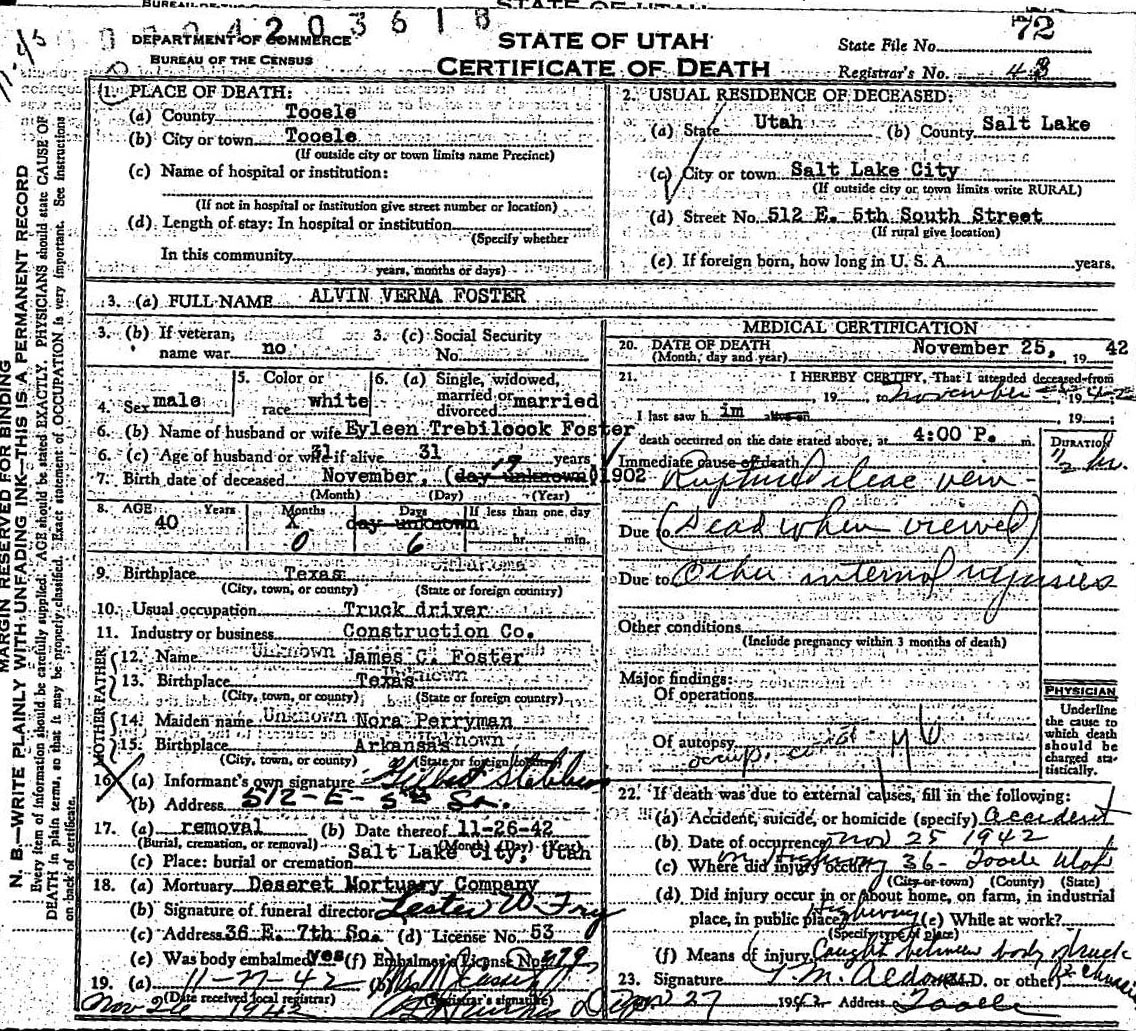 STATE OF UTAH
0 4 2 0 3 6 1 8
72
DEPARTMENT OF COMMERCE
BUREAU OF THE CENSUS
STATE OF UTAH
CERTIFICATE OF DEATH
State File No.
Registrar's No. 43
MARGIN RESERVED FOR BINDING
N. B.—WRITE PLAINLY WITH UNFADING INK—THIS IS A PERMANENT RECORD
Every item of information should be carefully supplied. AGE should be stated EXACTLY. PHYSICIANS should state CAUSE OF
DEATH in plain terms, so that it may be properly classified. Exact statement of OCCUPATION is very important. See Instructions
on back of certificate.
1. PLACE OF DEATH:
(a) County Tooele
(b) City or town Tooele
(If outside city or town limits name Precinct)
(c) Name of hospital or institution:
(If not in hospital or institution give street number or location)
(d) Length of stay: In hospital or institution
(Specify whether
In this community
years, months or days)
2. USUAL RESIDENCE OF DECEASED:
(a) State Utah (b) County Salt Lake
(c) City or town Salt Lake City
(If outside city or town limits write RURAL)
(d) Street No. 512 E. 5th South Street
(If rural give location)
(e) If foreign born, how long in U. S. A. years.
3. (a) FULL NAME ALVIN VERNA FOSTER
3. (b) If veteran, 3. (c) Social Security
name war no No.
4. Sex male
5. Color or
race white
6. (a) Single, widowed,
married or
divorced married
6. (b) Name of husband or wife Eyleen Trebilcock Foster
6. (c) Age of husband or wife if alive 31 years
7. Birth date of deceased November, 19 (day unknown) 1902
(Month) (Day) (Year)
8. AGE Years Months Days If less than one day
40 X day unknown
0 6 hr. min.
9. Birthplace Texas Oklahoma
(City, town, or county) (State or foreign country)
10. Usual occupation Truck driver
11. Industry or business Construction Co.
FATHER
12. Name Unknown James C. Foster
13. Birthplace Texas Unknown
(City, town, or county) (State or foreign country)
MOTHER
14. Maiden name Unknown Nora Perryman
15. Birthplace Arkansas Unknown
(City, town, or county) (State or foreign country)
16. (a) Informant's own signature
(b) Address 512-E-5th So.
17. (a) removal (b) Date thereof 11-26-42
(Burial, cremation, or removal) (Month) (Day) (Year)
(c) Place: burial or cremation Salt Lake City, Utah
18. (a) Mortuary Deseret Mortuary Company
(b) Signature of funeral director Lester W Fry
(c) Address 36 E. 7th So. (d) License No. 53
(e) Was body embalmed yes (f) Embalmer's License No. 279
19. (a) 11-27-42 (b)
(Date received local registrar) (Registrar's signature)
Nov 26 1942
MEDICAL CERTIFICATION
20. DATE OF DEATH November 25, 19 42
(Month, day and year)
21. I HEREBY CERTIFY, That I attended deceased from
, 19 , to November 25 1942
I last saw h im alive on 19
death occurred on the date stated above, at 4:00 P. m.
DURATION
Immediate cause of death 1/2 hr.
Ruptured iliac vein
Due to (Dead when viewed)
Due to Other internal injuries
Other conditions
(Include pregnancy within 3 months of death)
Major findings:
Of operations
Of autopsy
PHYSICIAN
Underline
the cause to
which death
should be
charged sta-
tistically.
22. If death was due to external causes, fill in the following:
(a) Accident, suicide, or homicide (specify) accident
(b) Date of occurrence Nov 25 1942
(c) Where did injury occur? on Highway 36 - Tooele Utah
(City or town) (County) (State)
(d) Did injury occur in or about home, on farm, in industrial
place, in public place? Highway (e) While at work?
(Specify type of place)
(f) Means of injury Caught between body of truck
23. Signature (M.D. or other)
Nov 27 1942 Address Tooele